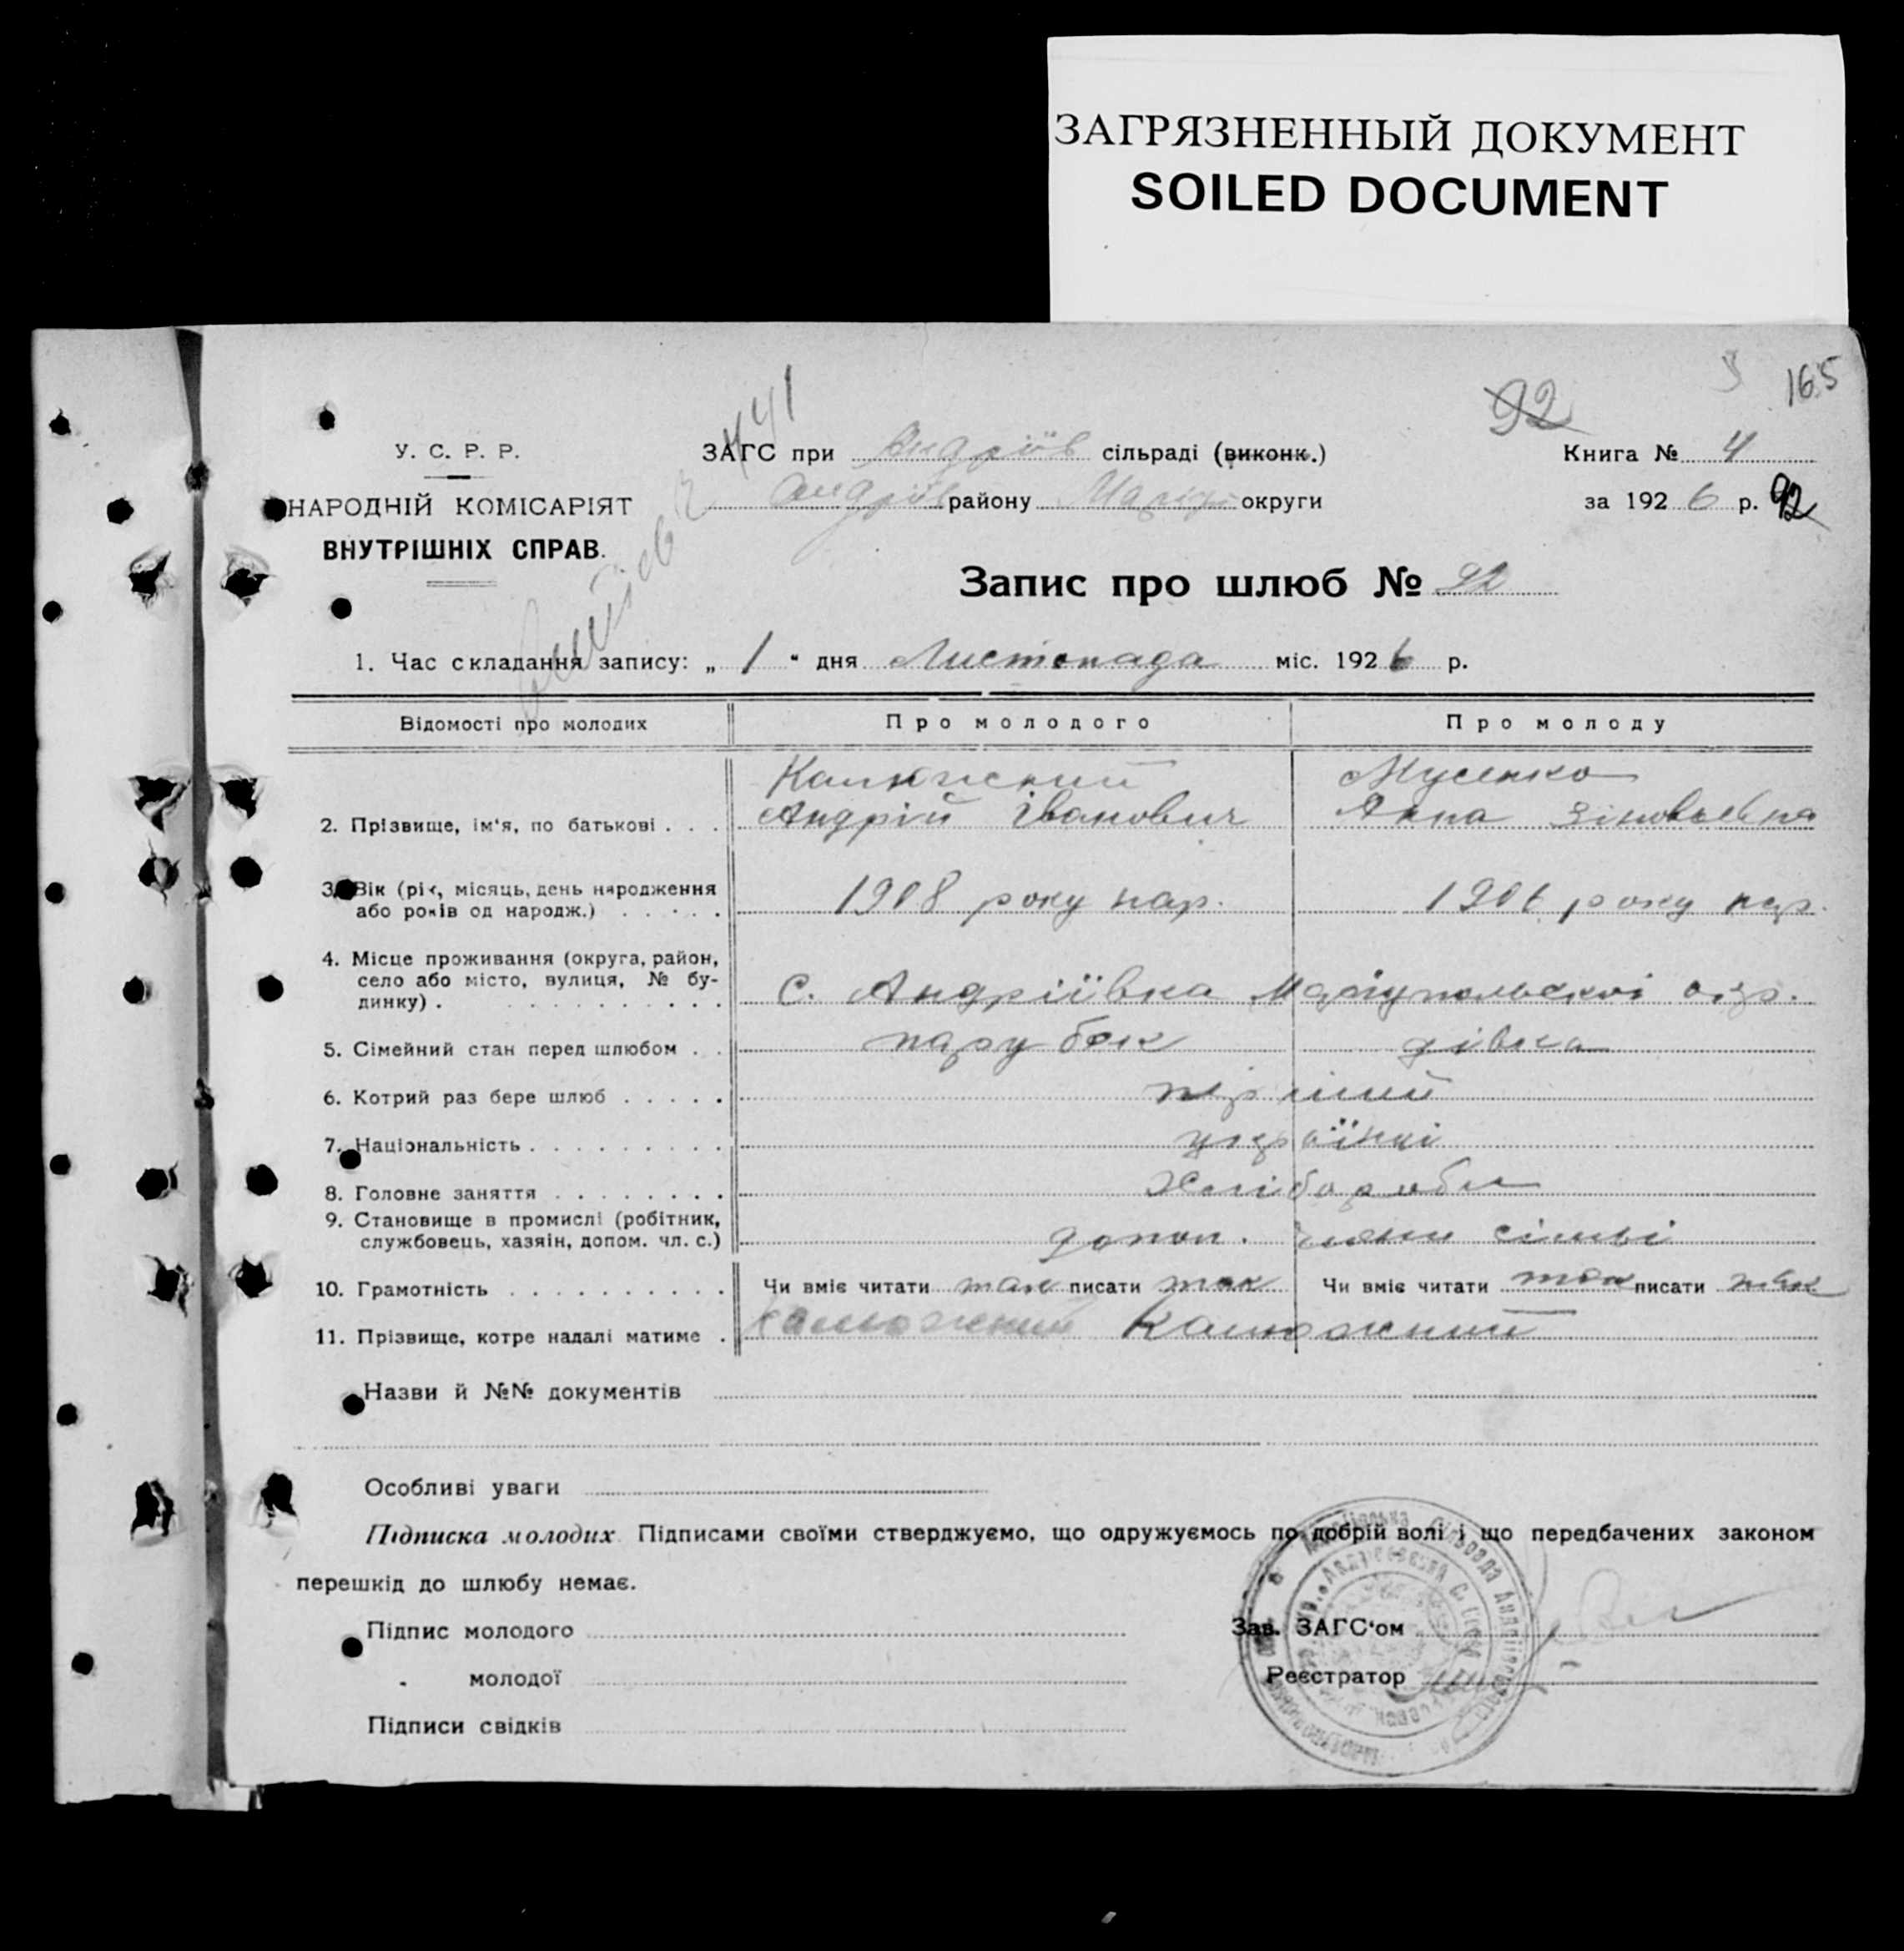 ЗАГРЯЗНЕННЫЙ ДОКУМЕНТ
SOILED DOCUMENT
165
92
441
У. С. Р. Р.
НАРОДНІЙ КОМІСАРІЯТ
ВНУТРІШНІХ СПРАВ.
ЗАГС при Андріїв сільраді (виконк.)
Андріїв району Маріуп округи
Книга № 4
за 1926 р. 92
Запис про шлюб № 92
1. Час складання запису: „ 1 " дня Листопада міс. 1926 р.
Відомості про молодих Про молодого Про молоду
Мусенко
2. Прізвище, ім'я, по батькові . . . Андрій Іванович Анна Зіновьевна
3. Вік (рік, місяць, день народження
або років од народж.) . . . . . 1908 року нар. 1906 року нар.
4. Місце проживання (округа, район,
село або місто, вулиця, № бу-
динку) . . . . . . . . . . С. Андріївка Маріупольскої окр.
5. Сімейний стан перед шлюбом . . парубок дівка
6. Котрий раз бере шлюб . . . . . перший
7. Національність . . . . . . . . . українці
8. Головне заняття . . . . . . . . Хлібороби
9. Становище в промислі (робітник,
службовець, хазяін, допом. чл. с.) допом. члени сімьі
10. Грамотність . . . . . . . . . . Чи вміє читати так писати так Чи вміє читати так писати так
11. Прізвище, котре надалі матиме . Калюжний Калюжний
Назви й №№ документів
Особливі уваги
Підписка молодих. Підписами своїми стверджуємо, що одружуємось по добрій волі і що передбачених законом
перешкід до шлюбу немає.
Підпис молодого
" молодої
Підписи свідків
Зав. ЗАГС'ом
Реєстратор